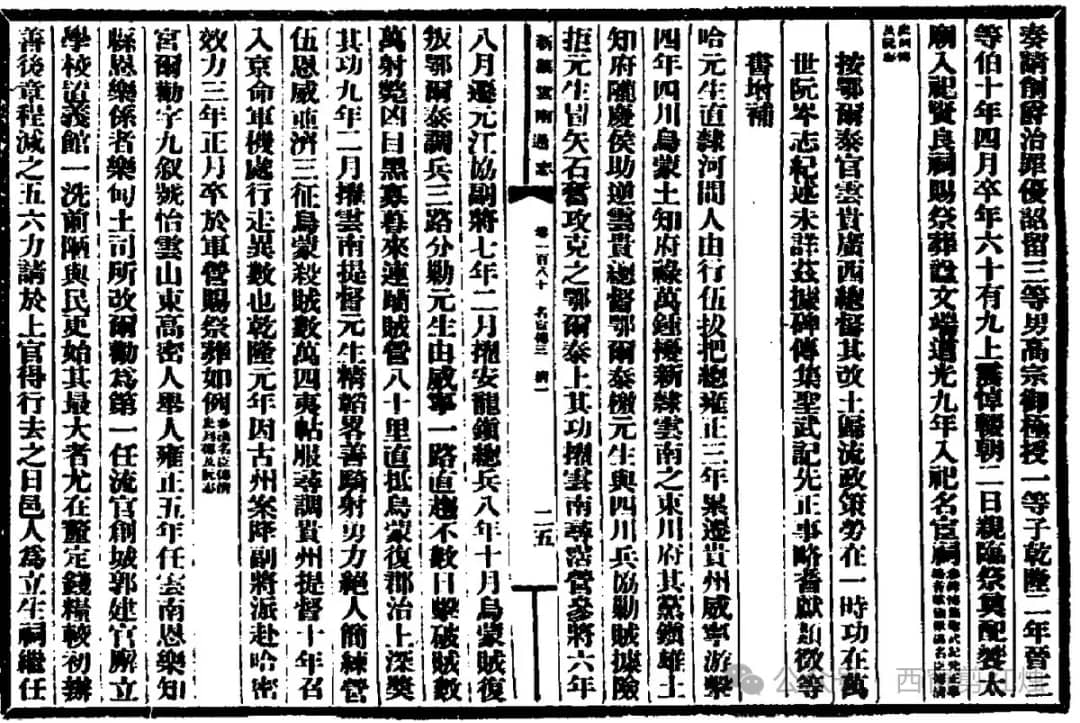 奏請削爵治罪優詔留三等男高宗御極授一等子乾隆二年晉三
等伯十年四月卒年六十有九上震悼輟朝二日親臨祭奠配饗太
廟入祀賢良祠賜祭葬諡文端道光九年入祀名宦祠
史列傳
及阮志
按鄂爾泰官雲貴廣西總督其改土歸流政策勞在一時功在萬
世阮岑志紀述未詳茲據碑傳集聖武記先正事略耆獻類徵等
書增補
哈元生直隸河間人由行伍拔把總雍正三年累遷貴州威寧游擊
四年四川烏蒙土知府祿萬鍾擾新隸雲南之東川府其黨鎮雄土
知府隴慶侯助逆雲貴總督鄂爾泰檄元生與四川兵協勦賊據險
拒元生冒矢石奮攻克之鄂爾泰上其功擢雲南尋霑營參將六年
新纂雲南通志
卷一百八十 名宦傳三 清一
二五
八月遷元江協副將七年二月擢安龍鎮總兵八年十月烏蒙賊復
叛鄂爾泰調兵三路分勦元生由威寧一路直趨不數日擊破賊數
萬射斃凶目黑寡暮末連破賊營八十里直抵烏蒙復郡治上深獎
其功九年二月擢雲南提督元生精韜畧善騎射勇力絕人簡練營
伍恩威並濟三征烏蒙殺賊數萬四夷帖服尋調貴州提督十年召
入京命軍機處行走異數也乾隆元年因古州案降副將派赴哈密
效力三年正月卒於軍營賜祭葬如例
史列傳及阮志
宮爾勸字九敘號怡雲山東高密人舉人雍正五年任雲南恩樂知
縣恩樂係者樂甸土司所改爾勸為第一任流官創城郭建官廨立
學校置義館一洗前陋與民更始其最大者尤在釐定錢糧較初辦
善後章程減之五六力請於上官得行去之日邑人為立生祠繼任
公众号